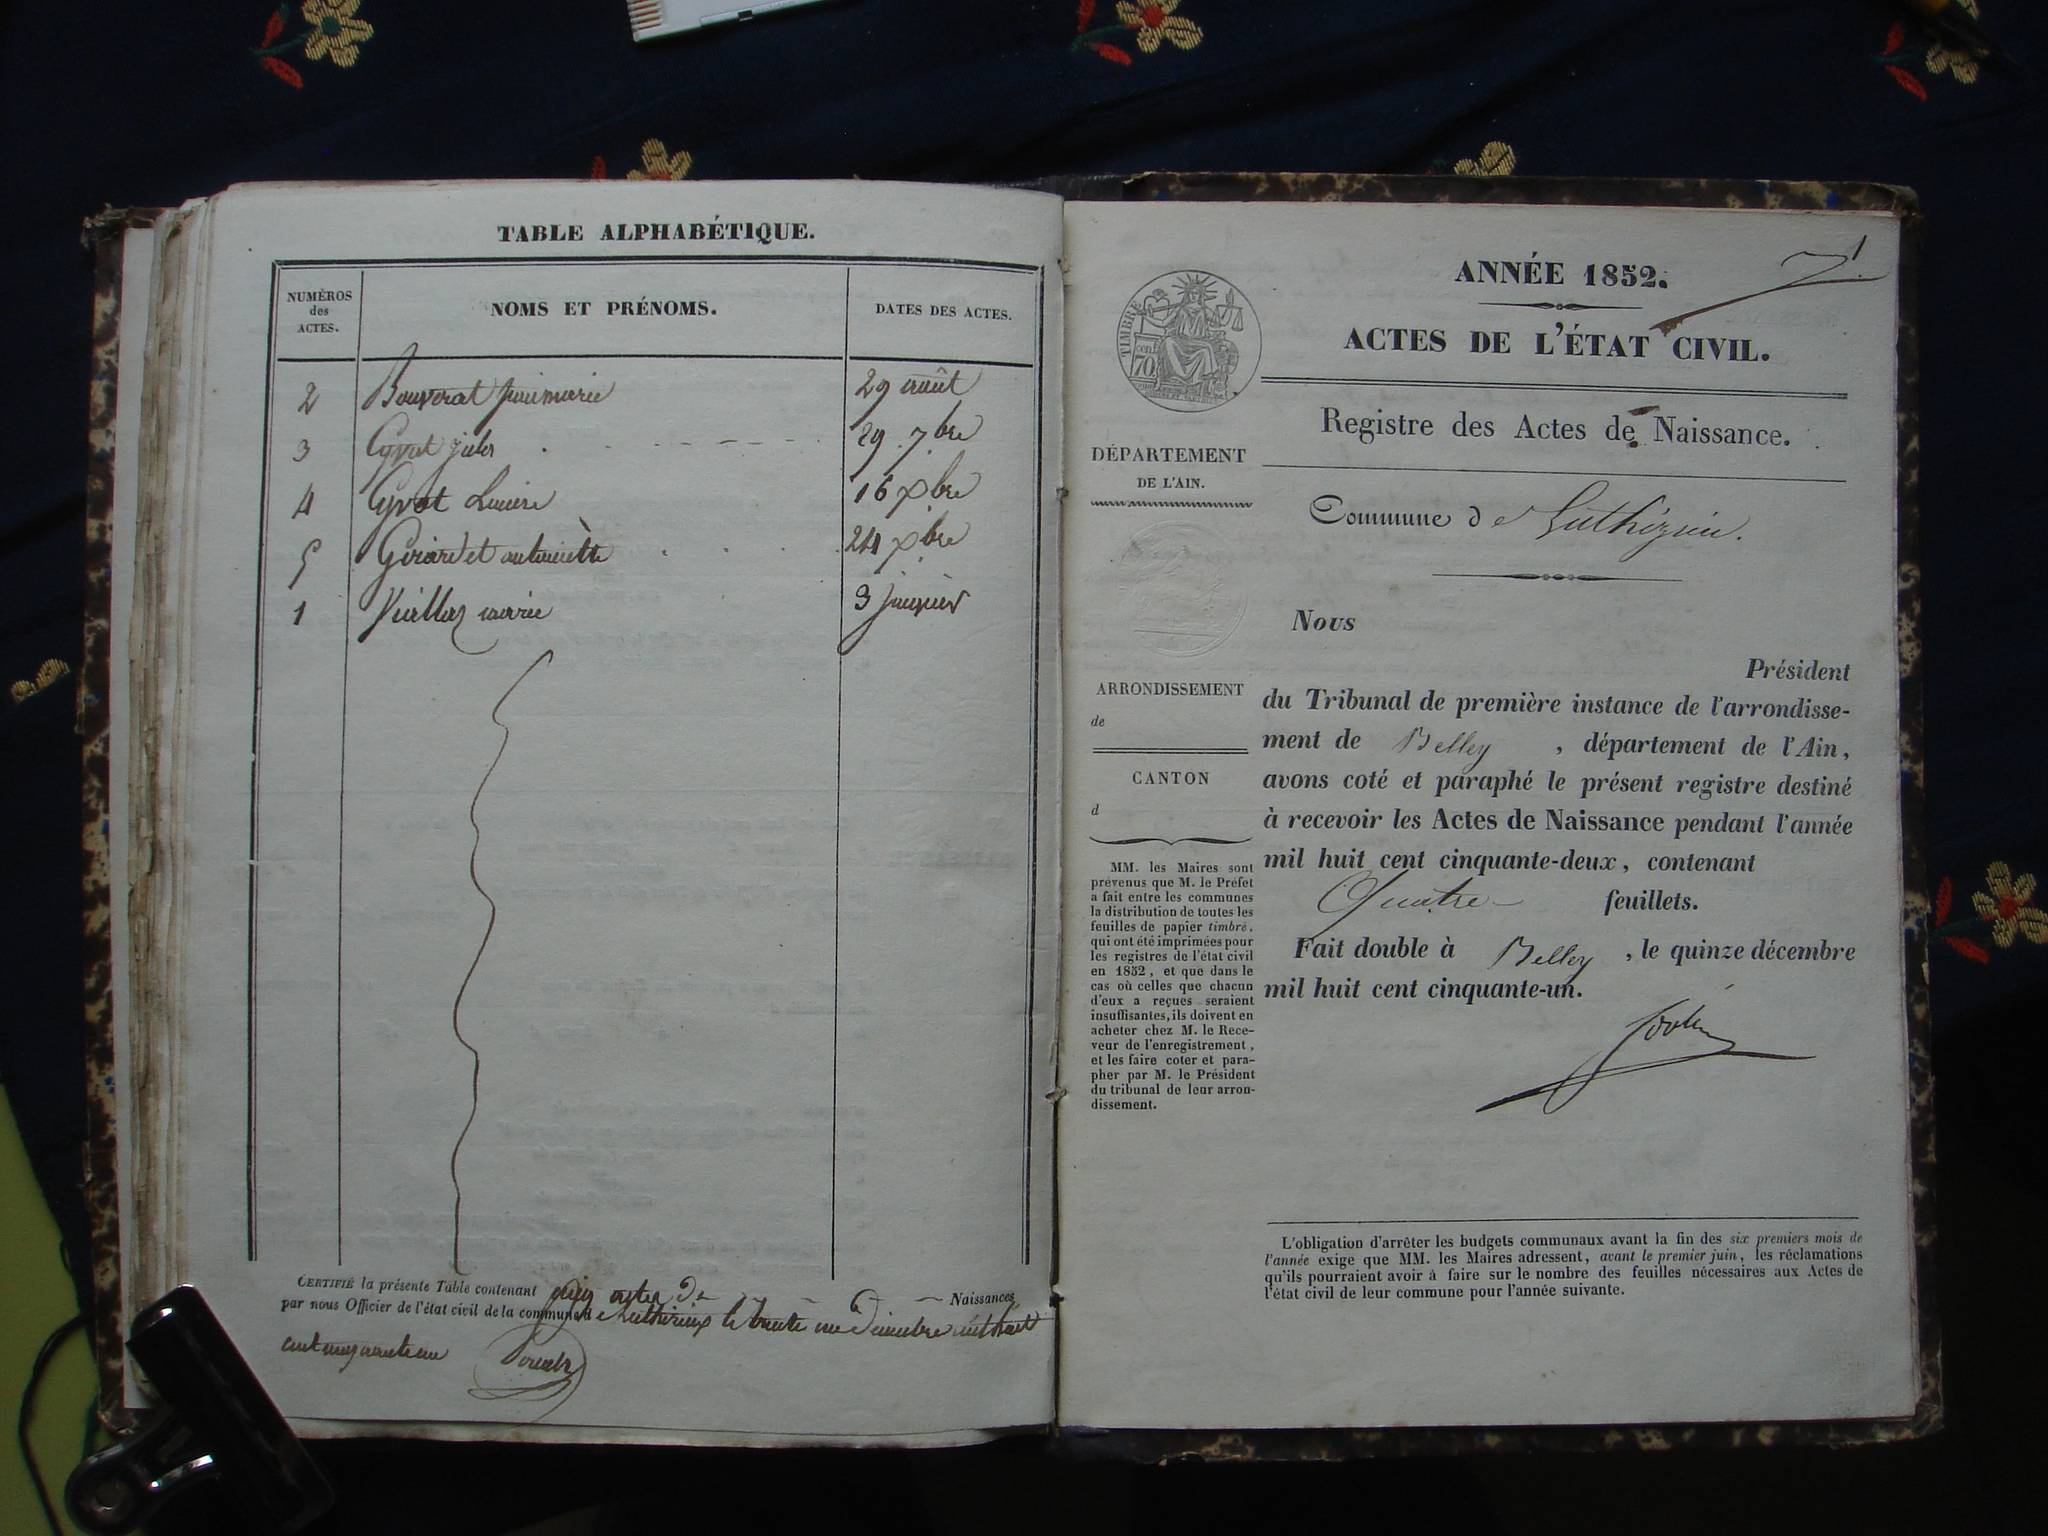 TABLE ALPHABÉTIQUE.
NUMÉROS
des
ACTES.
NOMS ET PRÉNOMS.
DATES DES ACTES.
2 Bouverat 29 août
3 Cyvat jules 29 7bre
4 Cyvat 16 xbre
5 Girardet antoinette 24 xbre
1 marie 3 janvier
CERTIFIÉ la présente Table contenant cinq actes de Naissances
par nous Officier de l'état civil de la commune d e Luthézieu le trente une Décembre mil huit
cent cinquante un
1
ANNÉE 1852.
ACTES DE L'ÉTAT CIVIL.
TIMBRE
70
Registre des Actes de Naissance.
DÉPARTEMENT
DE L'AIN.
Commune d e Luthézieu.
ARRONDISSEMENT
de
CANTON
d
MM. les Maires sont
prévenus que M. le Préfet
a fait entre les communes
la distribution de toutes les
feuilles de papier timbré,
qui ont été imprimées pour
les registres de l'état civil
en 1852, et que dans le
cas où celles que chacun
d'eux a reçues seraient
insuffisantes, ils doivent en
acheter chez M. le Rece-
veur de l'enregistrement,
et les faire coter et para-
pher par M. le Président
du tribunal de leur arron-
dissement.
Nous
Président
du Tribunal de première instance de l'arrondisse-
ment de Belley, département de l'Ain,
avons coté et paraphé le présent registre destiné
à recevoir les Actes de Naissance pendant l'année
mil huit cent cinquante-deux, contenant
Quatre feuillets.
Fait double à Belley, le quinze décembre
mil huit cent cinquante-un.
L'obligation d'arrêter les budgets communaux avant la fin des six premiers mois de
l'année exige que MM. les Maires adressent, avant le premier juin, les réclamations
qu'ils pourraient avoir à faire sur le nombre des feuilles nécessaires aux Actes de
l'état civil de leur commune pour l'année suivante.